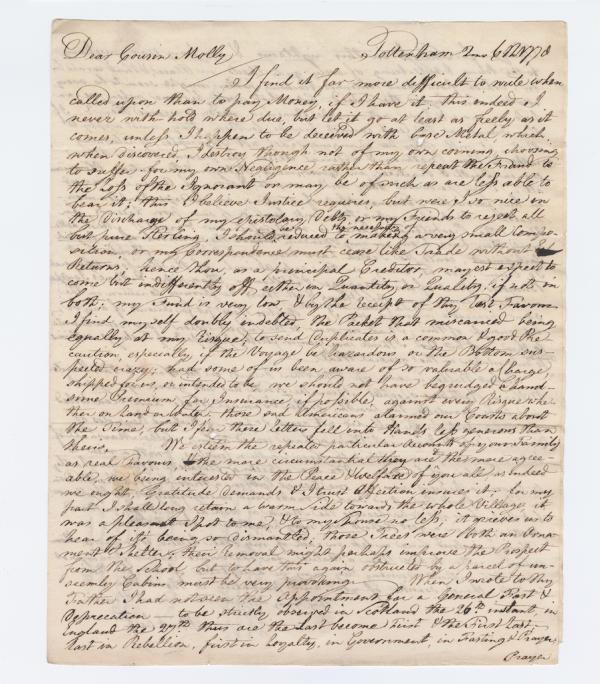 Dear Cousin Molly Tottenham 2mo 6 1778
I find it far more difficult to write when
called upon than to pay Money, if I have it, this indeed I
never with-hold where due, but let it go at least as freely as it
comes, unless I happen to be deceived with base Metal, which
when discovered, I destroy though not of my own coining, choosing
to suffer for my own Negligence, rather than repeat the Fraud to
the Loss of the Ignorant or may be of such as are less able to
bear it; this I believe Justice requires, but were I so nice in
the Discharge of my epistolary Debts, or my Friends to reject all
but pure Sterling, I should be reduced to the necessity of making a very small Compo-
sition, or my Correspondence must cease like Trade without
Returns, hence thou, as a principal Creditor, mayest expect to
come but indifferently off, either in Quantity or Quality, if not in
both; my Fund is very low & by the receipt of thy last Favour
I find myself doubly indebted, the Packet that miscarried being
equally at my Risque, to send Duplicates is a common & good Pre
caution, especially if the Voyage be hazardous or the Bottom sus-
pected crazy; had some of us been aware of so valuable a Charge,
shipped for us, or intended to be, we should not have begrudged a hand-
some Premium for Insurance, if possible, against every Risque whe-
ther on Land or Water, those sad Americans alarmed our Coasts about
the Time, but I fear these letters fell into Hands less generous than
theirs. We esteem the repeated particular Accounts of your Family
as real Favours, & the more circumstantial they are the more agree-
able, we being interested in the Peace & Welfare of you all as indeed
we ought, Gratitude demands & I trust Affection insures it; for my
part I shall long retain a warm side towards the whole Village, it
was a pleasant Spot to me, & to my house no less; it grieves us to
hear of its being so dismantled, those Trees were both an Orna-
ment & Shelter, their removal might perhaps improve the Prospect
from the School but to have this again obstructed by a parcel of un-
seemly Cabins must be very provoking. When I wrote to thy
Father I had not seen the Appointment for a General Fast &
Deprecation to be strictly observed in Scotland the 26th instant, in
England the 27th thus are the Last become First & the First Last;
Last in Rebellion, first in Loyalty, in Government, in Fasting & Prayer
Prayer